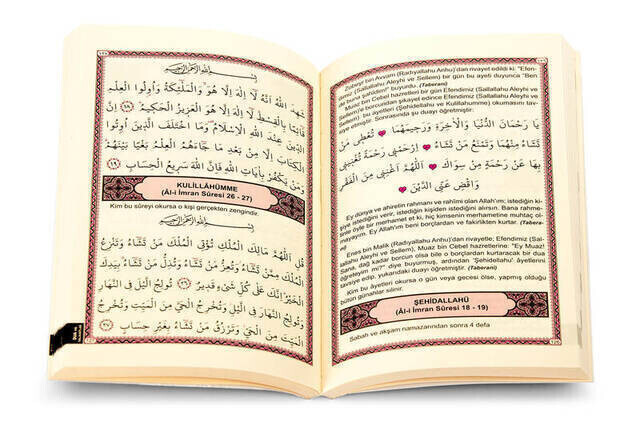 Zübeyr bin Avvam (Radıyallahu Anhu)'dan rivayet edildi ki: "Efen-
dimiz (Sallallahu Aleyhi ve Sellem) bir gün bu ayeti duyunca "Ben
de buna şahidim!" buyurdu. (Taberani)
Muaz bin Cebel hazretleri bir gün Efendimiz (Sallallahu Aleyhi ve
Sellem)'e borcundan şikayet edince Efendimiz (Sallallahu Aleyhi ve
Sellem), bu ayetleri (Şehidallahu ve Kulillahumme) okumasını tav-
siye etmiştir. Sonrasında şu duayı öğretmiştir:
يَا رَحْمَانَ الدُّنْيَا وَالْآخِرَةِ وَرَحِيمَهُمَا تُعْطِي مَنْ
تَشَاءُ مِنْهُمَا وَتَمْنَعُ مَنْ تَشَاءُ اِرْحَمْنِي رَحْمَةً تُغْنِينِي
بِهَا عَنْ رَحْمَةِ مَنْ سِوَاكَ اَللّٰهُمَّ اَغْنِنِي مِنَ الْفَقْرِ
وَاقْضِ عَنِّي الدَّيْنَ
Ey dünya ve ahiretin rahmanı ve rahîmi olan Allah'ım; istediğini
kişiye verir, istediğin kişiden istediğini alırsın. Bana rahme-
tinle öyle bir merhamet et ki, hiç kimsenin merhametine muhtaç ol-
mayayım. Ey Allah'ım beni borçlardan ve fakirlikten kurtar. (Taberani)
Enes bin Malik (Radıyallahu Anh)'dan rivayetle; Efendimiz (Sal-
lallahu Aleyhi ve Sellem), Muaz bin Cebel hazretlerine: "Ey Muaz!
Sana, dağ kadar borcun olsa bile o borçlardan kurtaracak bir dua
öğreteyim mi?" diye buyurmuş, ardından "Şehidallahu" âyetlerini
tavsiye edip, yukarıdaki duayı öğretmiştir. (Taberani)
Kim bu âyetleri okursa o gün veya gecesi ölse, yapmış olduğu
bütün günahlar silinir.
ŞEHİDALLAHÜ
(Âl-i İmran Sûresi 18 - 19)
Sabah ve akşam namazarından sonra 4 defa
بِسْمِ اللّٰهِ الرَّحْمٰنِ الرَّحِيمِ
شَهِدَ اللّٰهُ اَنَّهُ لَا اِلٰهَ اِلَّا هُوَ وَالْمَلٰئِكَةُ وَاُولُوا الْعِلْمِ
قَائِمًا بِالْقِسْطِ لَا اِلٰهَ اِلَّا هُوَ الْعَزِيزُ الْحَكِيمُ ﴿١٨﴾ اِنَّ
الدِّينَ عِنْدَ اللّٰهِ الْاِسْلَامُ وَمَا اخْتَلَفَ الَّذِينَ اُوتُوا
الْكِتَابَ اِلَّا مِنْ بَعْدِ مَا جَاءَهُمُ الْعِلْمُ بَغْيًا بَيْنَهُمْ
وَمَنْ يَكْفُرْ بِاٰيَاتِ اللّٰهِ فَاِنَّ اللّٰهَ سَرِيعُ الْحِسَابِ ﴿١٩﴾
KULİLLÂHÜMME
(Âl-i İmran Sûresi 26 - 27)
Kim bu sûreyi okursa o kişi gerçekten zengindir.
بِسْمِ اللّٰهِ الرَّحْمٰنِ الرَّحِيمِ
قُلِ اللّٰهُمَّ مَالِكَ الْمُلْكِ تُؤْتِي الْمُلْكَ مَنْ تَشَاءُ وَتَنْزِعُ
الْمُلْكَ مِمَّنْ تَشَاءُ وَتُعِزُّ مَنْ تَشَاءُ وَتُذِلُّ مَنْ تَشَاءُ بِيَدِكَ
الْخَيْرُ اِنَّكَ عَلٰى كُلِّ شَيْءٍ قَدِيرٌ ﴿٢٦﴾ تُولِجُ الَّيْلَ فِي النَّهَارِ
وَتُولِجُ النَّهَارَ فِي الَّيْلِ وَتُخْرِجُ الْحَيَّ مِنَ الْمَيِّتِ وَتُخْرِجُ
الْمَيِّتَ مِنَ الْحَيِّ وَتَرْزُقُ مَنْ تَشَاءُ بِغَيْرِ حِسَابٍ ﴿٢٧﴾